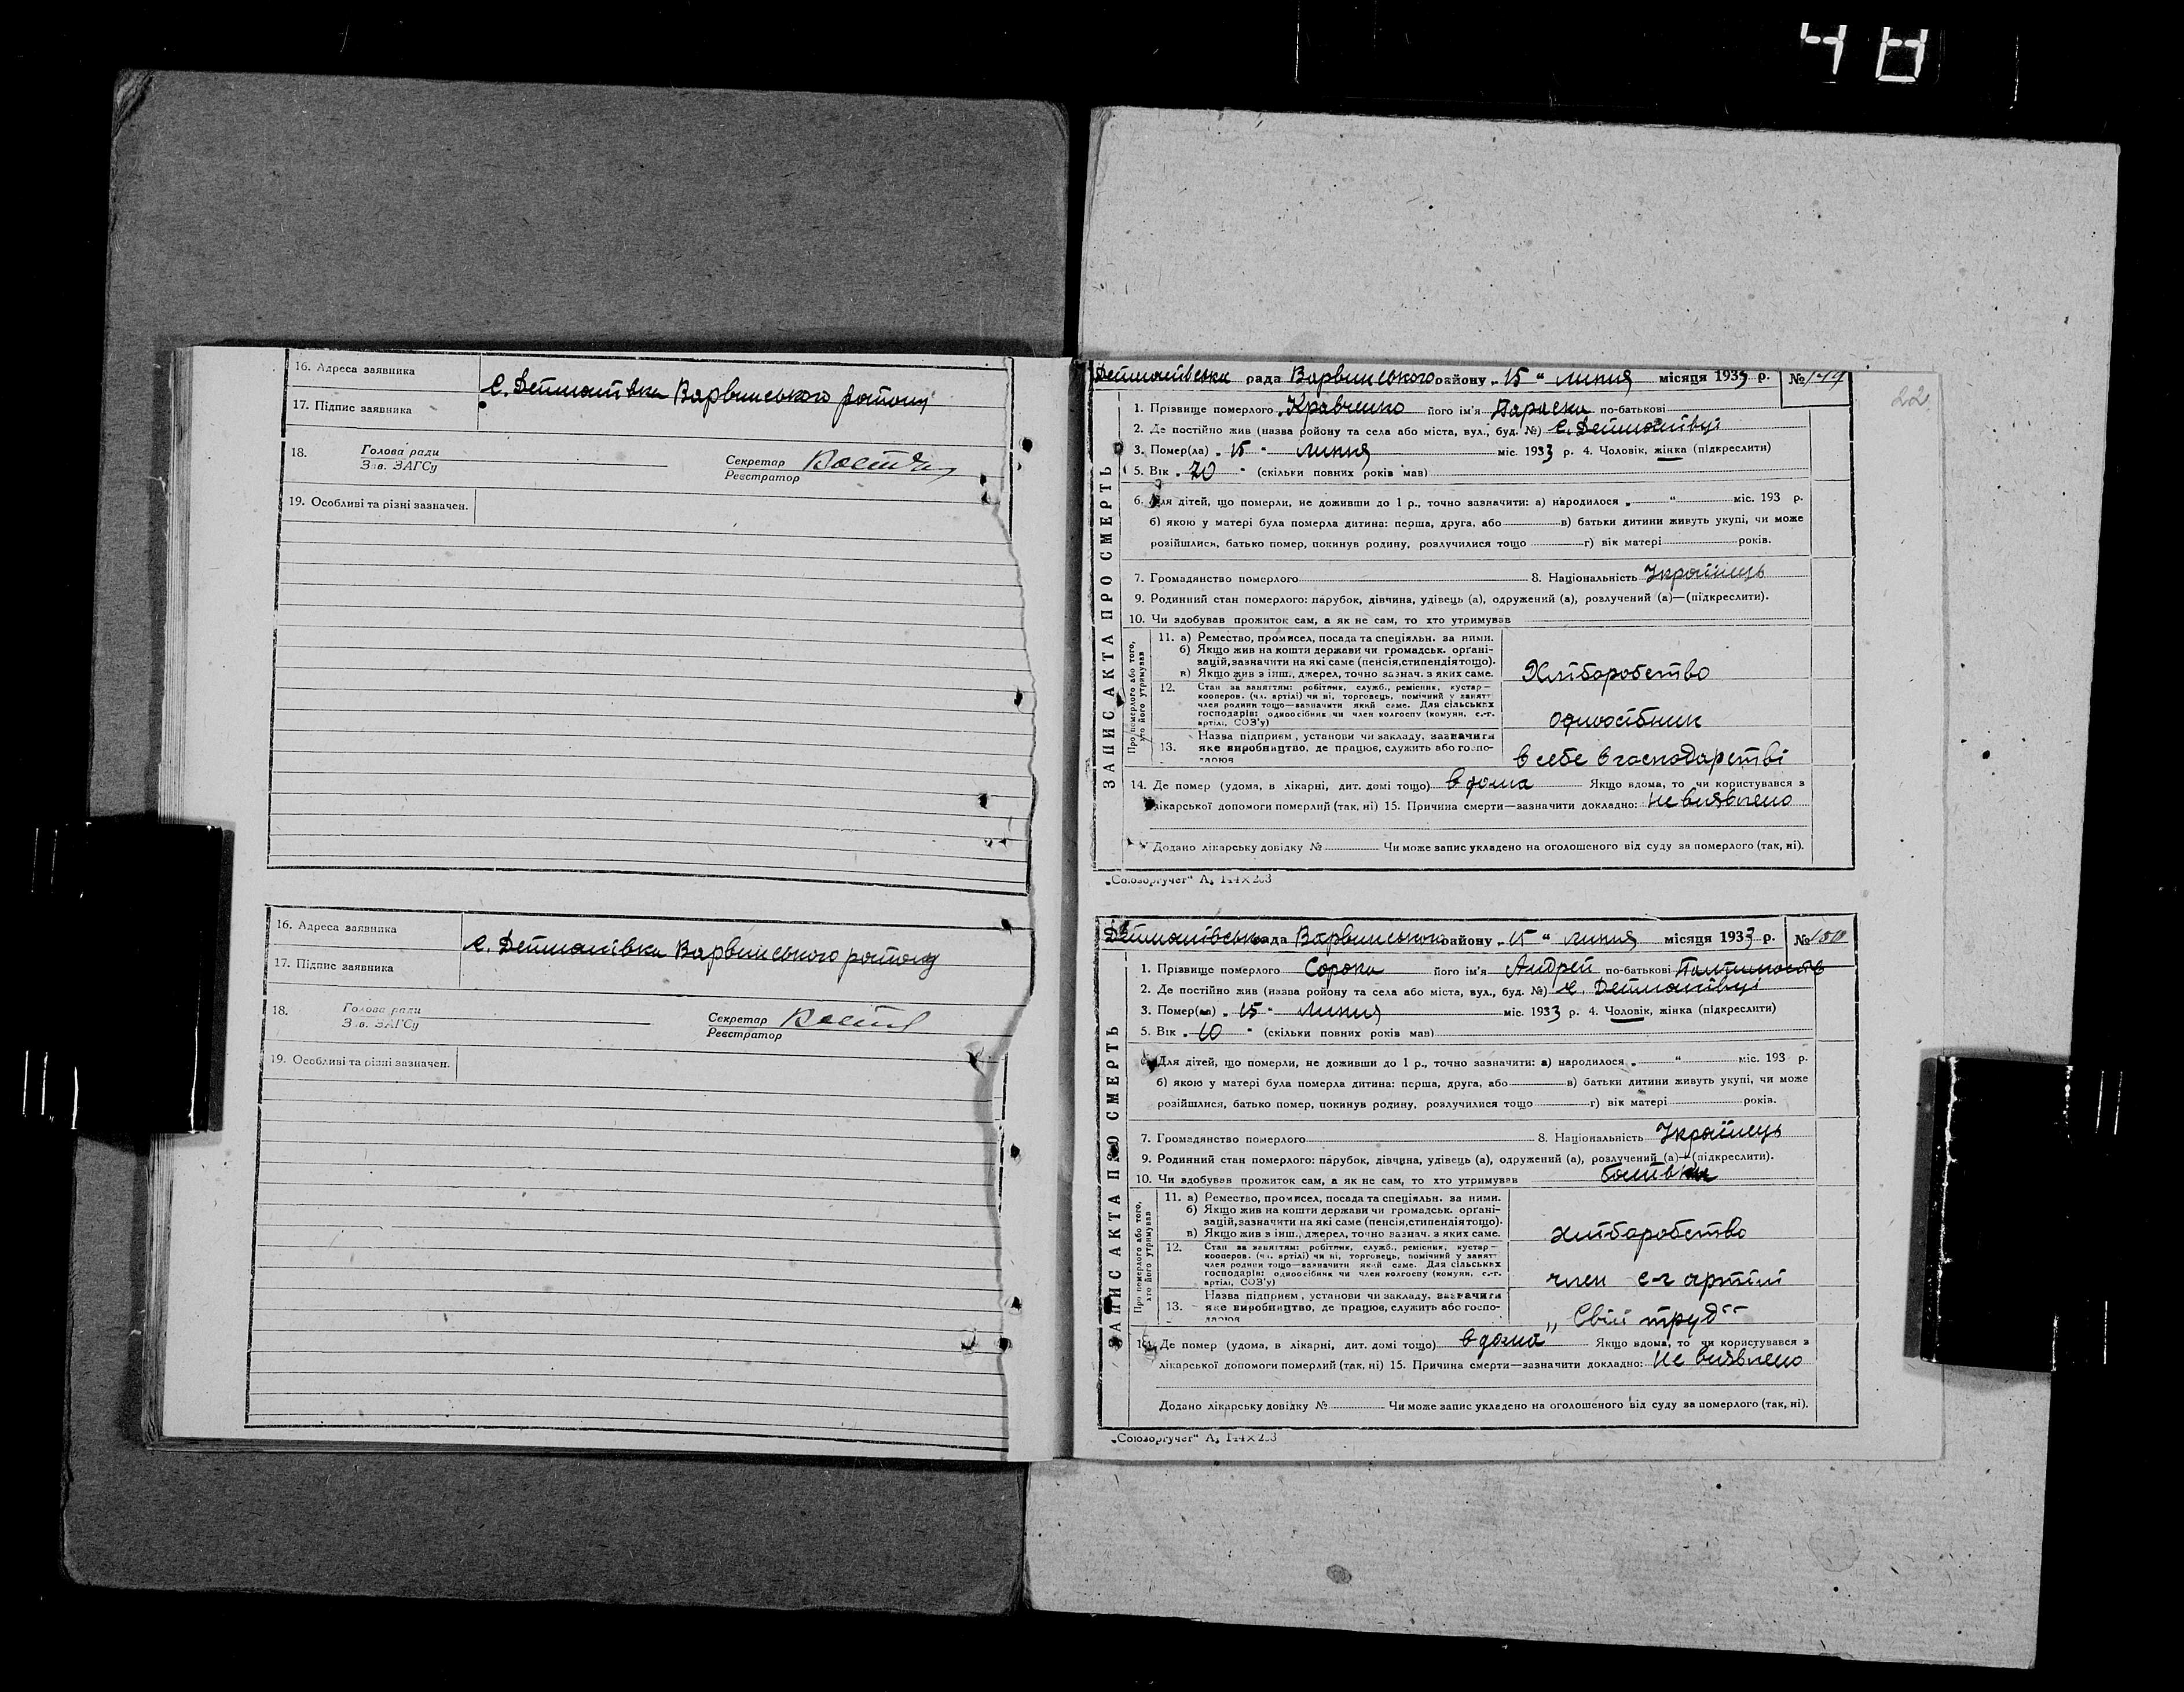 48
16. Адреса заявника
с. Дейманівка Варвинського району
17. Підпис заявника
18. Голова ради
Зав. ЗАГСу
Секретар
Реєстратор
19. Особливі та різні зазначен.
16. Адреса заявника
с. Дейманівка Варвинського району
17. Підпис заявника
18. Голова ради
Зав. ЗАГСу
Секретар
Реєстратор
19. Особливі та різні зазначен.
22
ЗАПИС АКТА ПРО СМЕРТЬ
Дейманівська рада Варвинського району „15“ липня місяця 1933 р. № 149
1. Прізвище померлого Кравченко його ім'я Параска по-батькові
2. Де постійно жив (назва району та села або міста, вул., буд. №) с. Дейманівці
3. Помер(ла) „15“ липня міс. 1933 р. 4. Чоловік, жінка (підкреслити)
5. Вік „70“ (скільки повних років мав)
6. Для дітей, що померли, не доживши до 1 р., точно зазначити: а) народилося „ “ міс. 193 р.
б) якою у матері була померла дитина: перша, друга, або в) батьки дитини живуть укупі, чи може
розійшлися, батько помер, покинув родину, розлучилися тощо г) вік матері років.
7. Громадянство померлого 8. Національність Українець
9. Родинний стан померлого: парубок, дівчина, удівець (а), одружений (а), розлучений (а)—(підкреслити).
10. Чи здобував прожиток сам, а як не сам, то хто утримував
Про померлого або того, хто його утримував
11. а) Ремество, промисел, посада та спеціяльн. за ними.
б) Якщо жив на кошти держави чи громадськ. орґані-
зацій, зазначити на які саме (пенсія, стипендія тощо).
в) Якщо жив з інш. джерел, точно зазнач. з яких саме.
Хліборобство
12. Стан за заняттям: робітник, служб., ремісник, кустар—
кооперов. (чл. артілі) чи ні, торговець, помічний у занятт
член родини тощо—зазначити який саме. Для сільських
господарів: одноосібник чи член колгоспу (комуни, с.-г.
артілі, СОЗ'у)
одноосібник
13. Назва підприєм., установи чи закладу, зазначити
яке виробництво, де працює, служить або госпо-
дарює
в себе в господарстві
14. Де помер (удома, в лікарні, дит. домі тощо) вдома Якщо вдома, то чи користувався з
лікарської допомоги померлий (так, ні) 15. Причина смерти—зазначити докладно: Не виявлено
Додано лікарську довідку № Чи може запис укладено на оголошеного від суду за померлого (так, ні).
„Союзоргучет“
ЗАПИС АКТА ПРО СМЕРТЬ
Дейманівська рада Варвинського району „15“ липня місяця 1933 р. № 150
1. Прізвище померлого Сорока його ім'я Андрей по-батькові
2. Де постійно жив (назва району та села або міста, вул., буд. №) с. Дейманівці
3. Помер(ла) „15“ липня міс. 1933 р. 4. Чоловік, жінка (підкреслити)
5. Вік „10“ (скільки повних років мав)
6. Для дітей, що померли, не доживши до 1 р., точно зазначити: а) народилося „ “ міс. 193 р.
б) якою у матері була померла дитина: перша, друга, або в) батьки дитини живуть укупі, чи може
розійшлися, батько помер, покинув родину, розлучилися тощо г) вік матері років.
7. Громадянство померлого 8. Національність Українець
9. Родинний стан померлого: парубок, дівчина, удівець (а), одружений (а), розлучений (а)—(підкреслити).
10. Чи здобував прожиток сам, а як не сам, то хто утримував
Про померлого або того, хто його утримував
11. а) Ремество, промисел, посада та спеціяльн. за ними.
б) Якщо жив на кошти держави чи громадськ. орґані-
зацій, зазначити на які саме (пенсія, стипендія тощо).
в) Якщо жив з інш. джерел, точно зазнач. з яких саме.
хліборобство
12. Стан за заняттям: робітник, служб., ремісник, кустар—
кооперов. (чл. артілі) чи ні, торговець, помічний у занятт
член родини тощо—зазначити який саме. Для сільських
господарів: одноосібник чи член колгоспу (комуни, с.-г.
артілі, СОЗ'у)
член с-г артілі
13. Назва підприєм., установи чи закладу, зазначити
яке виробництво, де працює, служить або госпо-
дарює
„Свій труд“
14. Де помер (удома, в лікарні, дит. домі тощо) вдома Якщо вдома, то чи користувався з
лікарської допомоги померлий (так, ні) 15. Причина смерти—зазначити докладно: Не виявлено
Додано лікарську довідку № Чи може запис укладено на оголошеного від суду за померлого (так, ні).
„Союзоргучет“